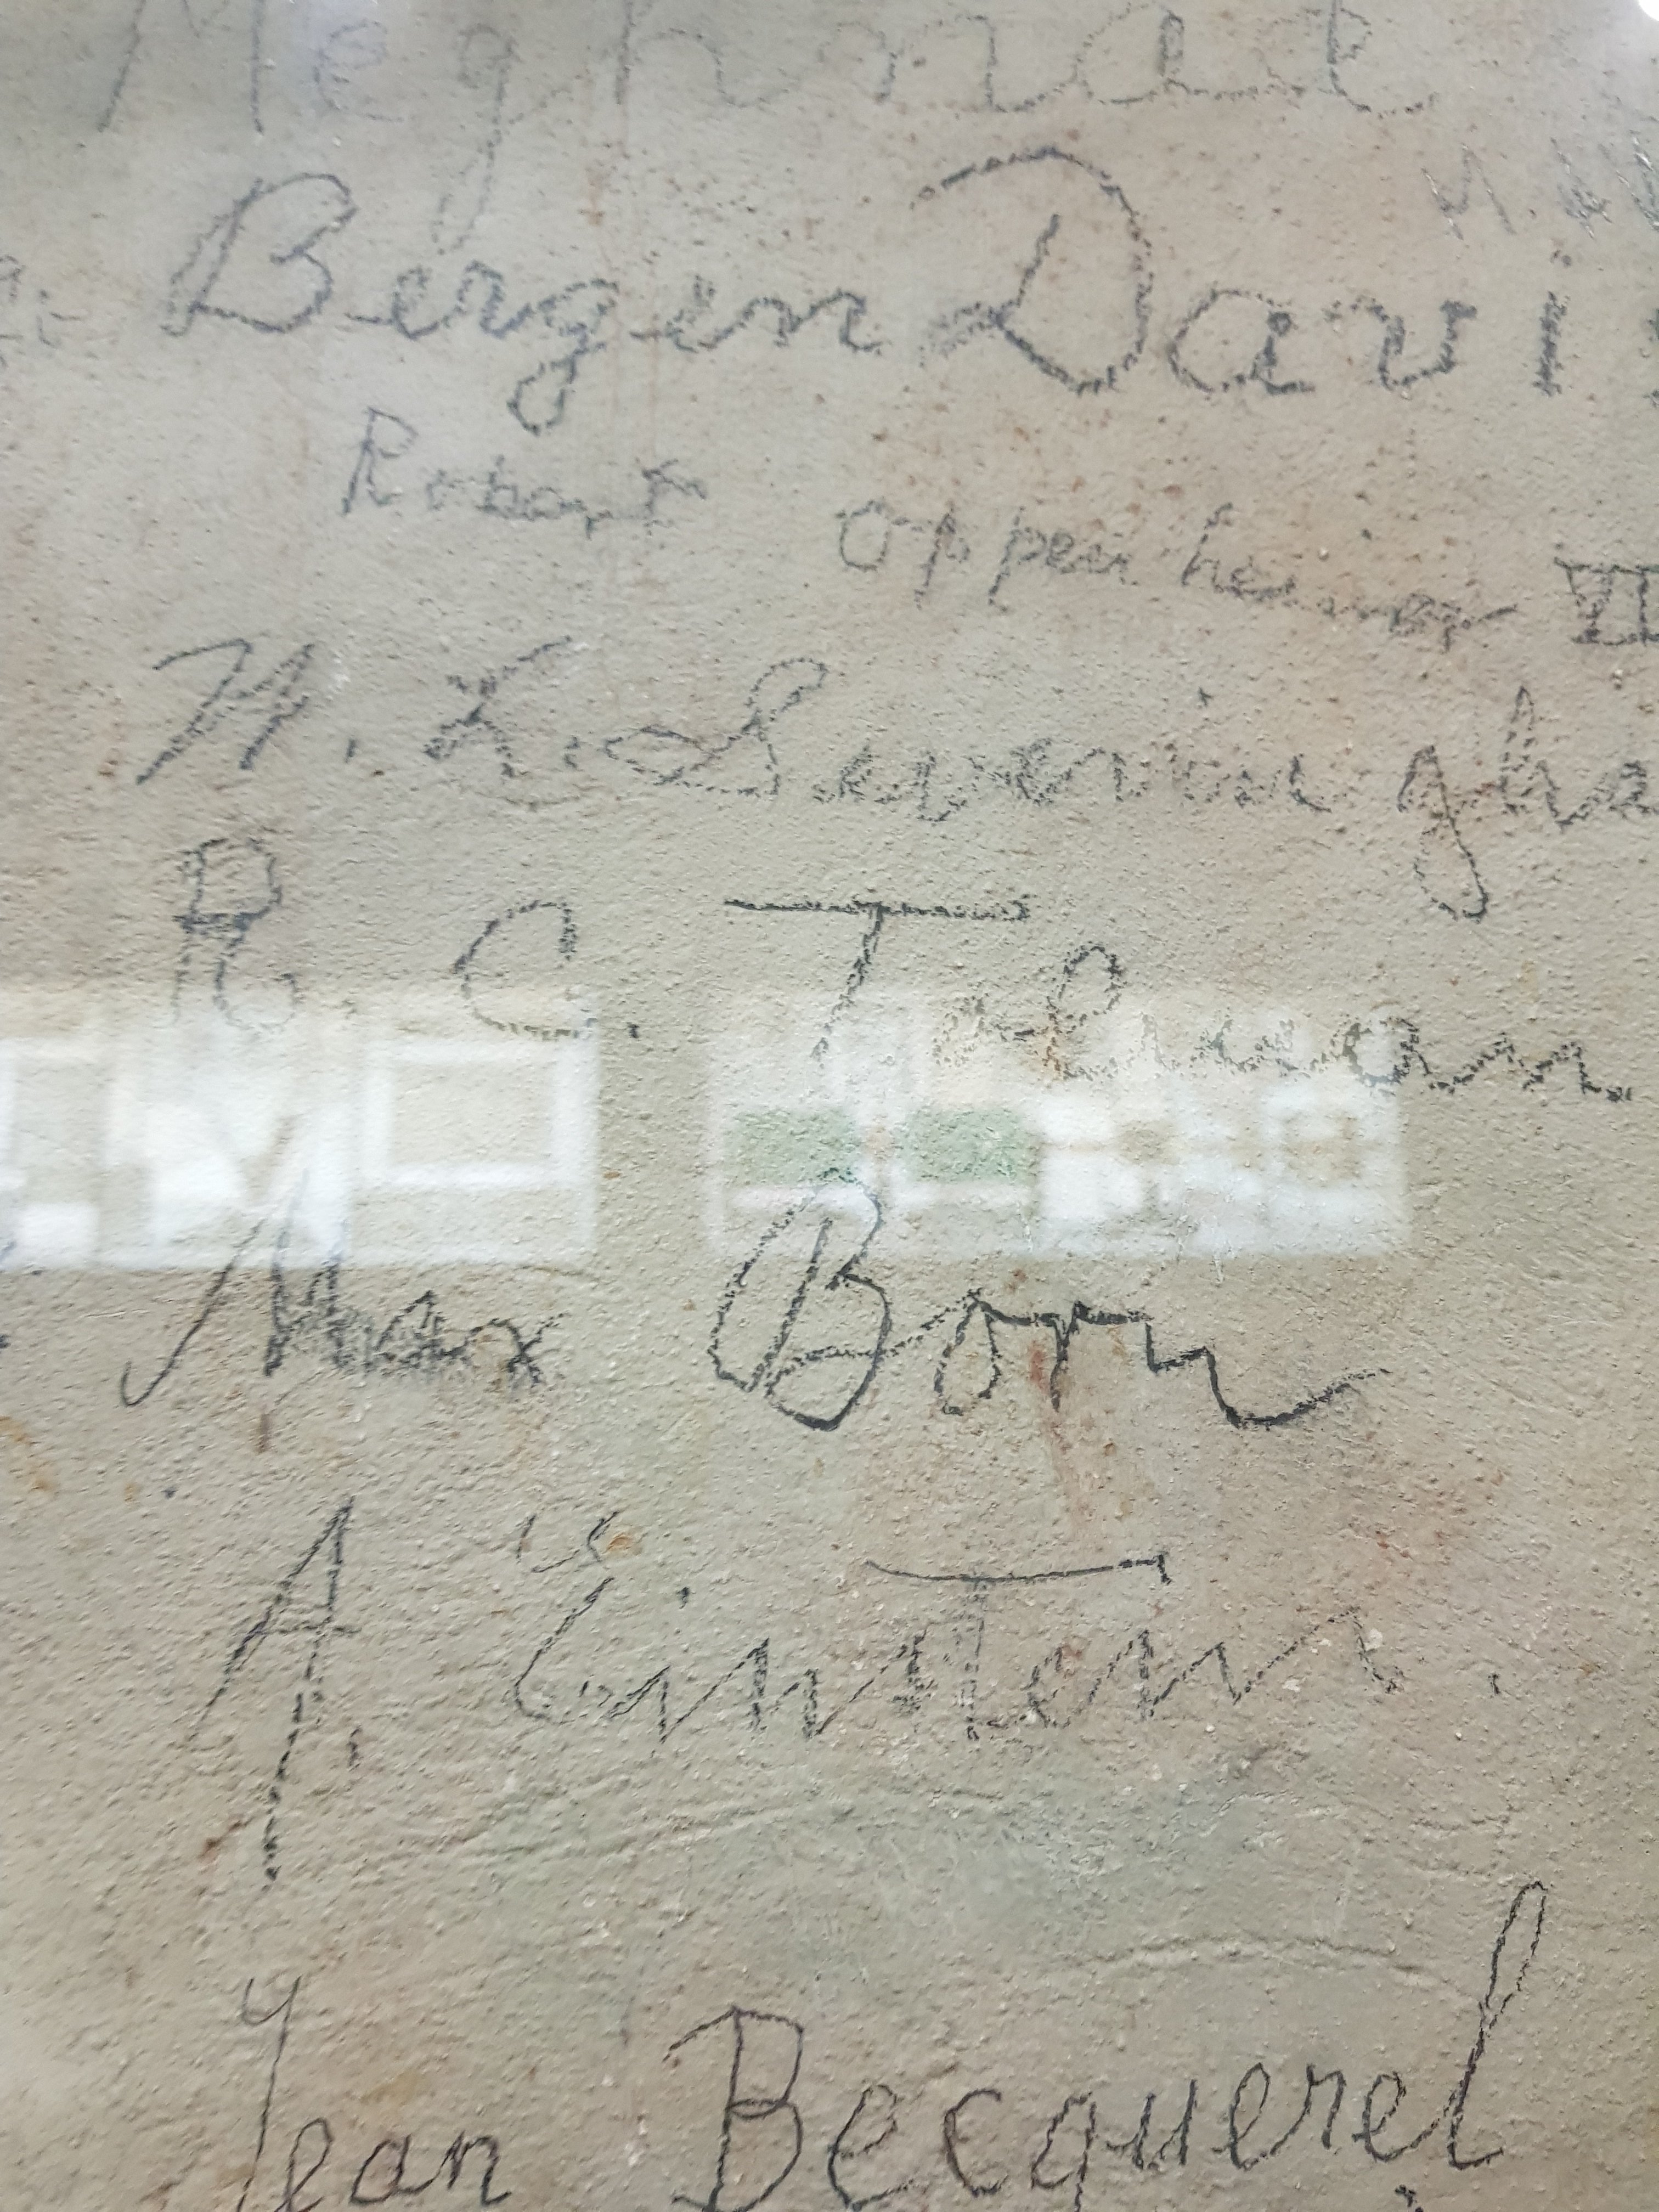 Meghnad
Bergen Davis
Robert Oppenheimer VI
R. C. Tolman.
Max Born
A. Einstein.
Jean Becquerel